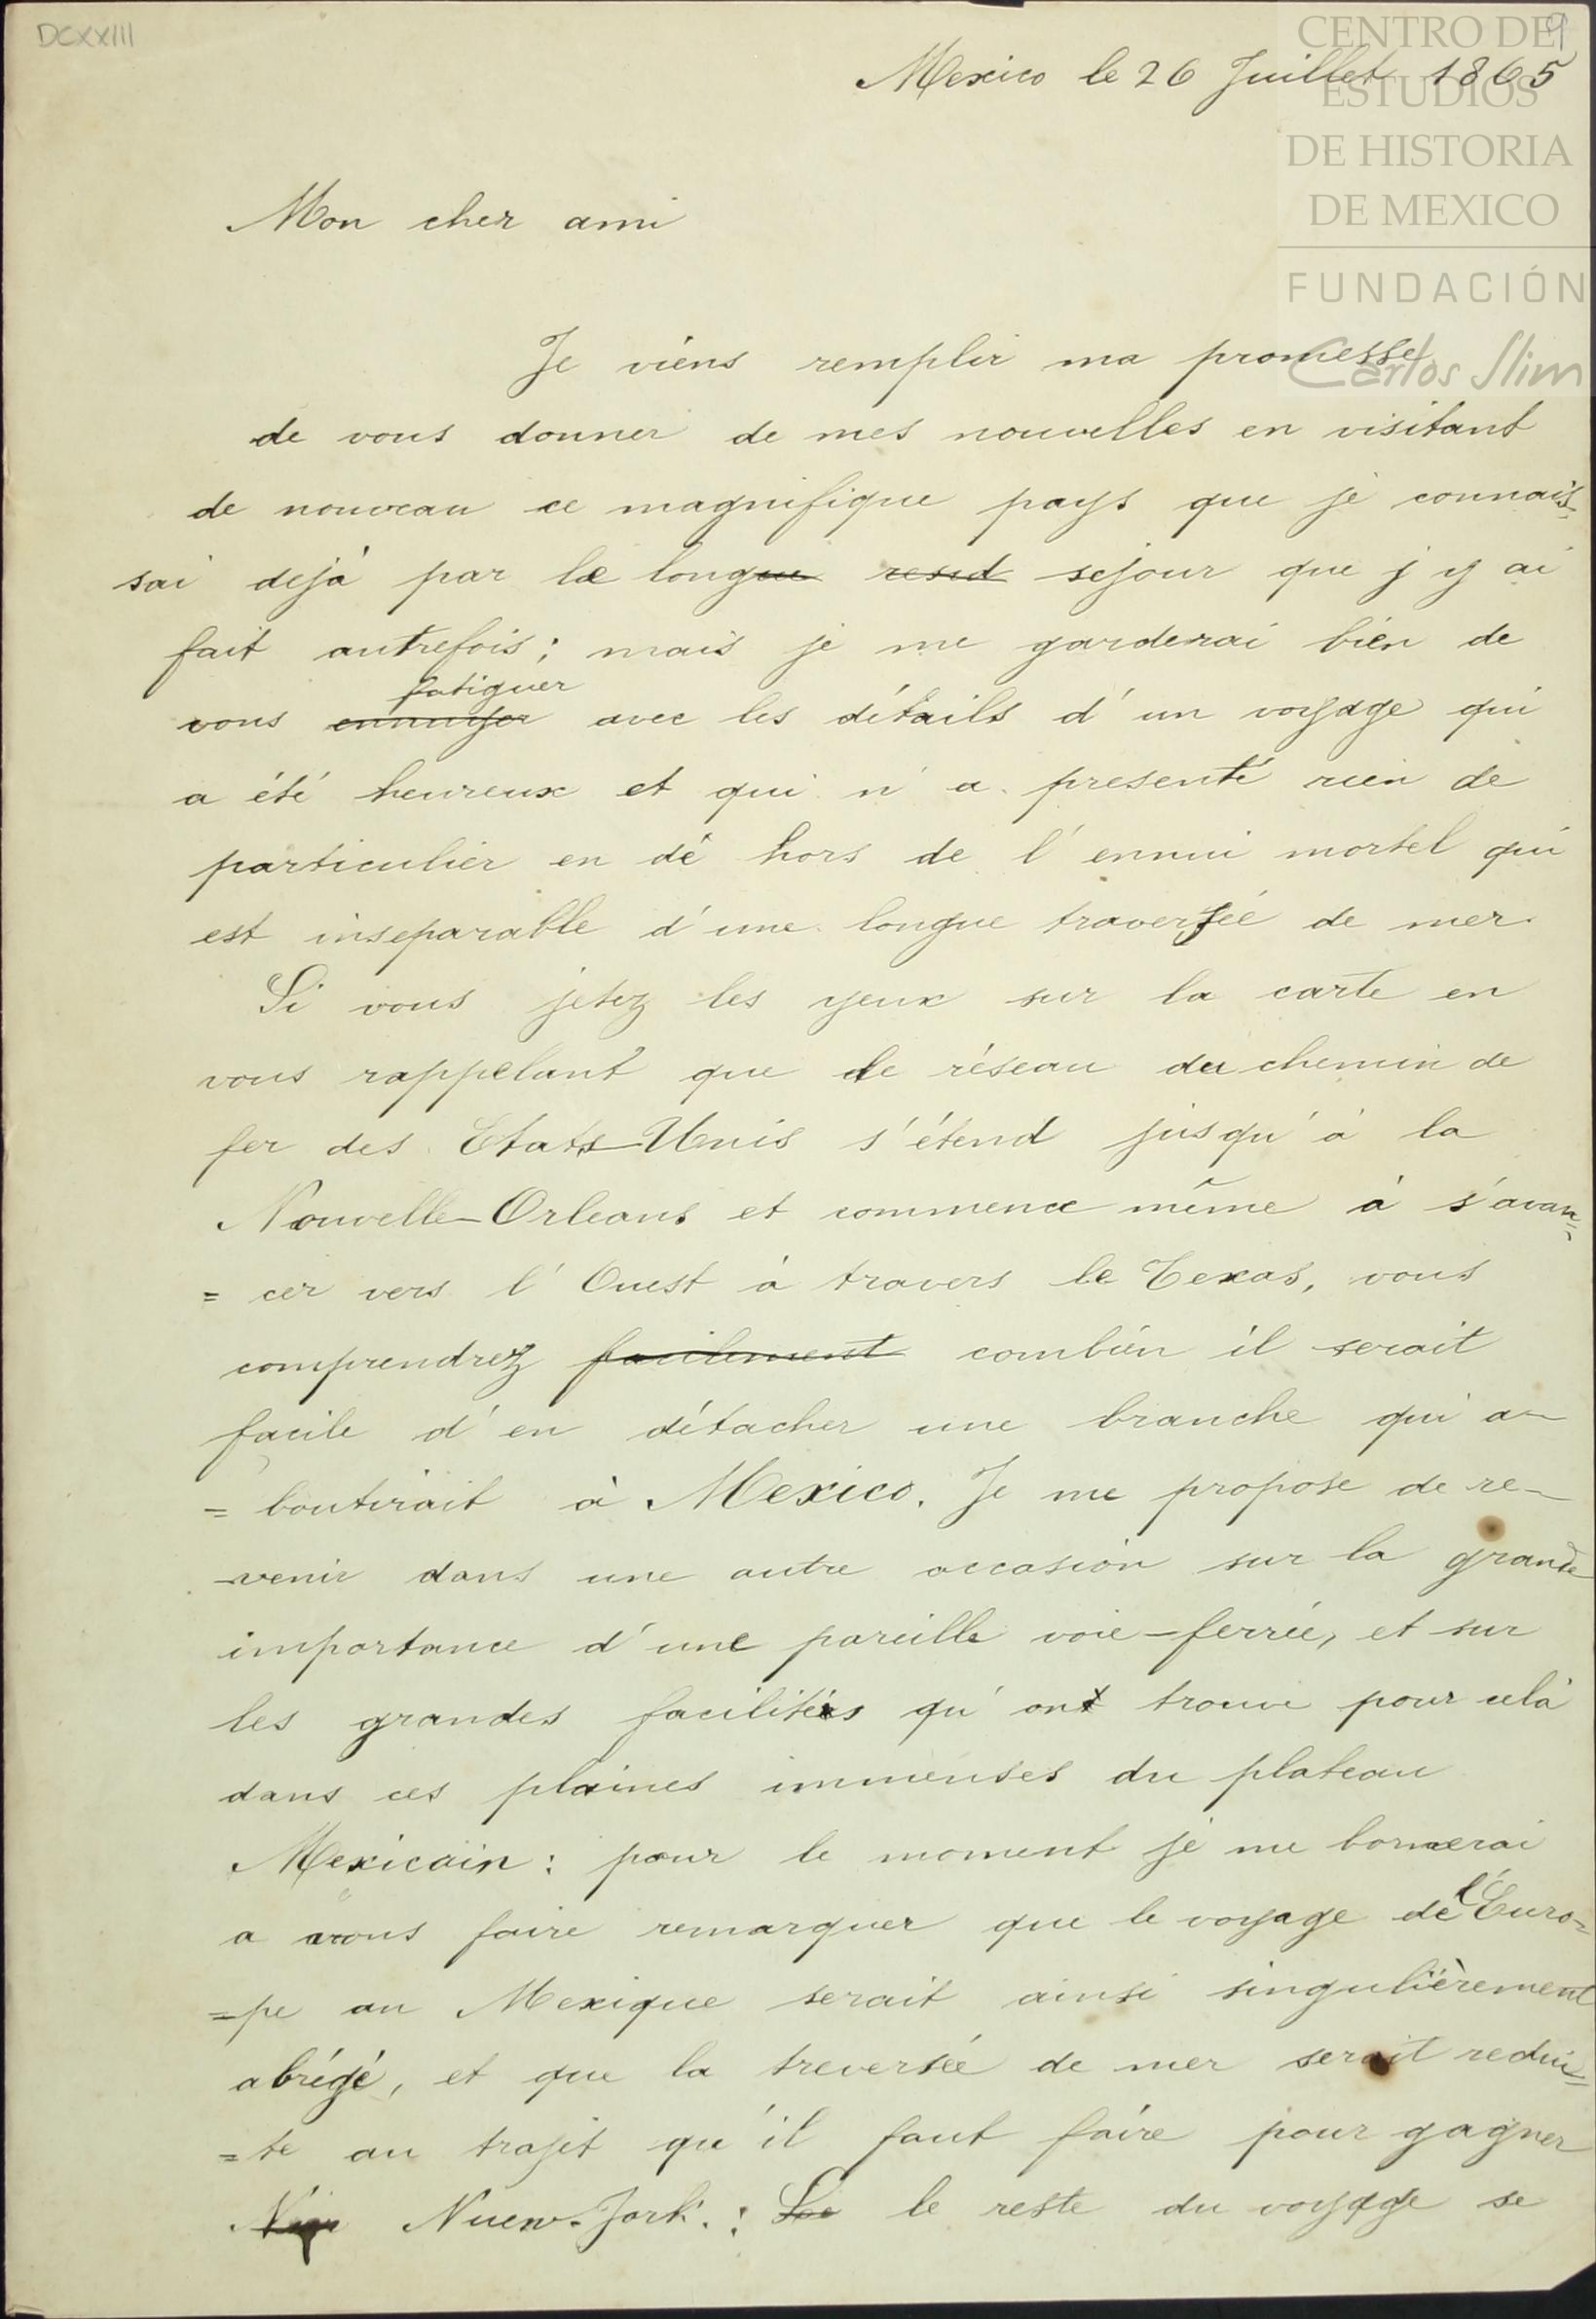 DCXXIII
9
CENTRO DE
ESTUDIOS
DE HISTORIA
DE MEXICO
FUNDACIÓN
Carlos Slim
Mexico le 26 Juillet 1865
Mon cher ami
Je viens remplir ma promesse
de vous donner de mes nouvelles en visitant
de nouveau ce magnifique pays que je connais-
sai dejà par le longue resid sejour que j y ai
fait autrefois; mais je me garderai bien de
fatiguer
vous ennuyer avec les détails d'un voyage qui
a été heureux et qui n'a presenté rien de
particulier en dé hors de l'ennui mortel qui
est inseparable d'une longue traversée de mer.
Si vous jetez les yeux sur la carte en
vous rappelant que le réseau du chemin de
fer des Etats-Unis s'étend jusqu'à la
Nouvelle-Orleans et commence même à s'avan=
= cer vers l'Ouest à travers le Texas, vous
comprendrez facilement combien il serait
facile d'en détacher une branche qui a-
= boutirait à Mexico. Je me propose de re-
-venir dans une autre occasion sur la grande
importance d'une pareille voie-ferrée, et sur
les grandes facilités qu'ont trouve pour celà
dans ces plaines immenses du plateau
Mexicain: pour le moment je me bornerai
a vous faire remarquer que le voyage de l'Euro=
=pe au Mexique serait ainsi singulièrement
abrégé, et que la treversée de mer serait redui=
=te au trajet qu'il faut faire pour gagner
Nuew-Jork.: le reste du voyage se